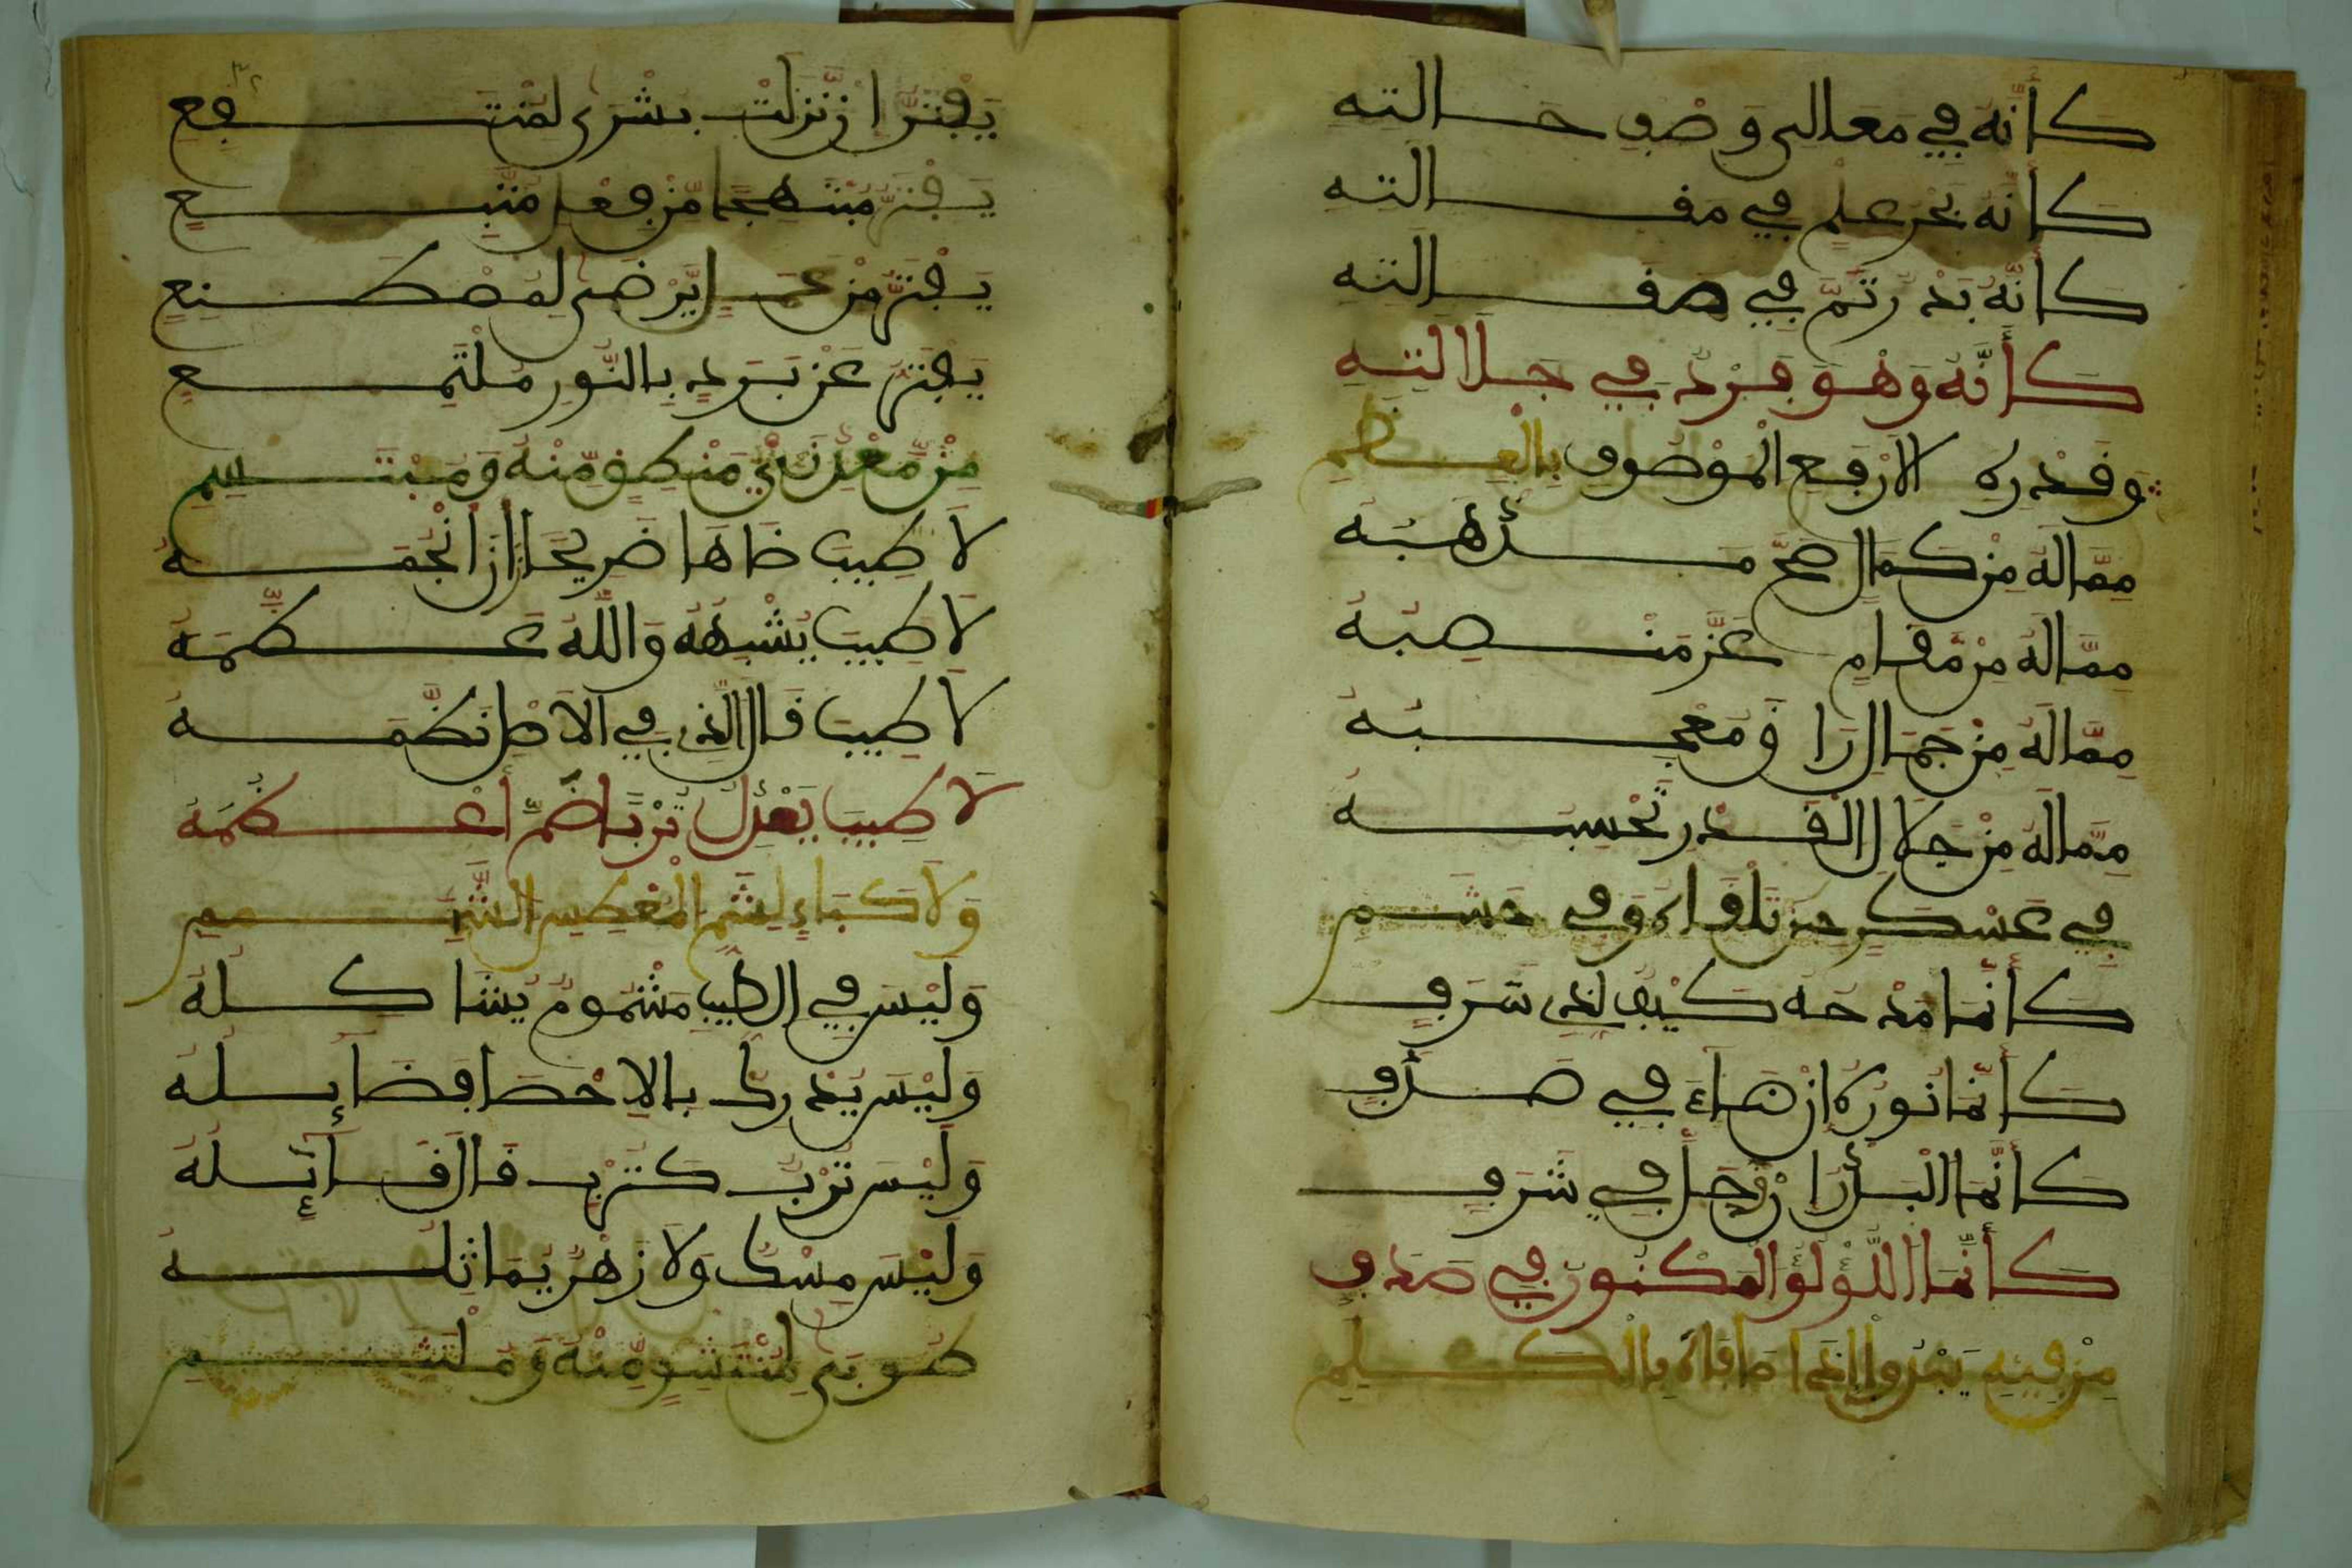 كَأَنَّهُ فِي مَعَالِي وَصْفِ حَالَتِهِ
كَأَنَّهُ بَحْرُ عِلْمٍ فِي مَقَالَتِهِ
كَأَنَّهُ بَدْرُ تَمٍّ فِي صَقَالَتِهِ
كَأَنَّهُ وَهْوَ فَرْدٌ فِي جَلَالَتِهِ
وَقَدْرِهِ الْأَرْفَعِ الْمَوْصُوفِ بِالْعِظَمِ
مِمَّا لَهُ مِنْ كَمَالٍ صَحَّ مَذْهَبُهُ
مِمَّا لَهُ مِنْ مَّقَامٍ عَزَّ مَنْصِبُهُ
مِمَّا لَهُ مِنْ جَمَالٍ رَاقَ مُعْجِبُهُ
مِمَّا لَهُ مِنْ جَلَالِ الْقَدْرِ تَحْسِبُهُ
فِي عَسْكَرٍ حِينَ تَلْقَاهُ وَفِي حَشَمِ
كَأَنَّمَا مَدْحُهُ كَيْفٌ لِذِي شَرَفِ
كَأَنَّمَا نُورُهُ إِنْ ضَاءَ فِي صَدَفِ
كَأَنَّمَا الْبَدْرُ إِنْ حَلَّ فِي شَرَفِ
كَأَنَّمَا اللُّؤْلُؤُ الْمَكْنُونُ فِي صَدَفِ
مِنْ فِيهِ يَبْدُو إِذَا مَا فَاهَ بِالْكَلِمِ
يَفْتَرُّ إِنْ نَزَلَتْ بُشْرَى لِمُنْتَفِعِ
يَفْتَرُّ مُبْتَهِجًا مِّنْ فِعْلِ مُتَّبِعِ
يَفْتَرُّ مِنْ عَمَلٍ يُرْضَى لِمُصْطَنِعِ
يَفْتَرُّ عَنْ بَرَدٍ بِالنُّورِ مُلْتَمِعِ
مِنْ مَّعْدِنَيْ مَنْطِقٍ مِّنْهُ وَمُبْتَسَمِ
لَا طِيبَ ضَاهَا ضَرِيحًا زَانَ أَنْجُمَهُ
لَا طِيبَ يُشْبِهُهُ وَاللَّهُ عَظَّمَهُ
لَا طِيبَ قَالَ الَّذِي فِي الْأَصْلِ نَظَّمَهُ
لَا طِيبَ يَعْدِلُ تُرْبًا ضَمَّ أَعْظُمَهُ
وَلَا كَبَاءٍ لِشَمِّ الْمَعْطِسِ الشَّمِمِ
وَلَيْسَ فِي الطِّيبِ مَشْمُومٌ يُشَاكِلُهُ
وَلَيْسَ يُدْرِكُ بِالْإِحْصَا فَضَائِلَهُ
وَلَيْسَ تُرْبٌ كَتُرْبٍ قَالَ قَائِلُهُ
وَلَيْسَ مِسْكٌ وَلَا زَهْرٌ يُمَاثِلُهُ
طُوبَى لِمُنْتَشِقٍ مِّنْهُ وَمُلْتَثِمِ